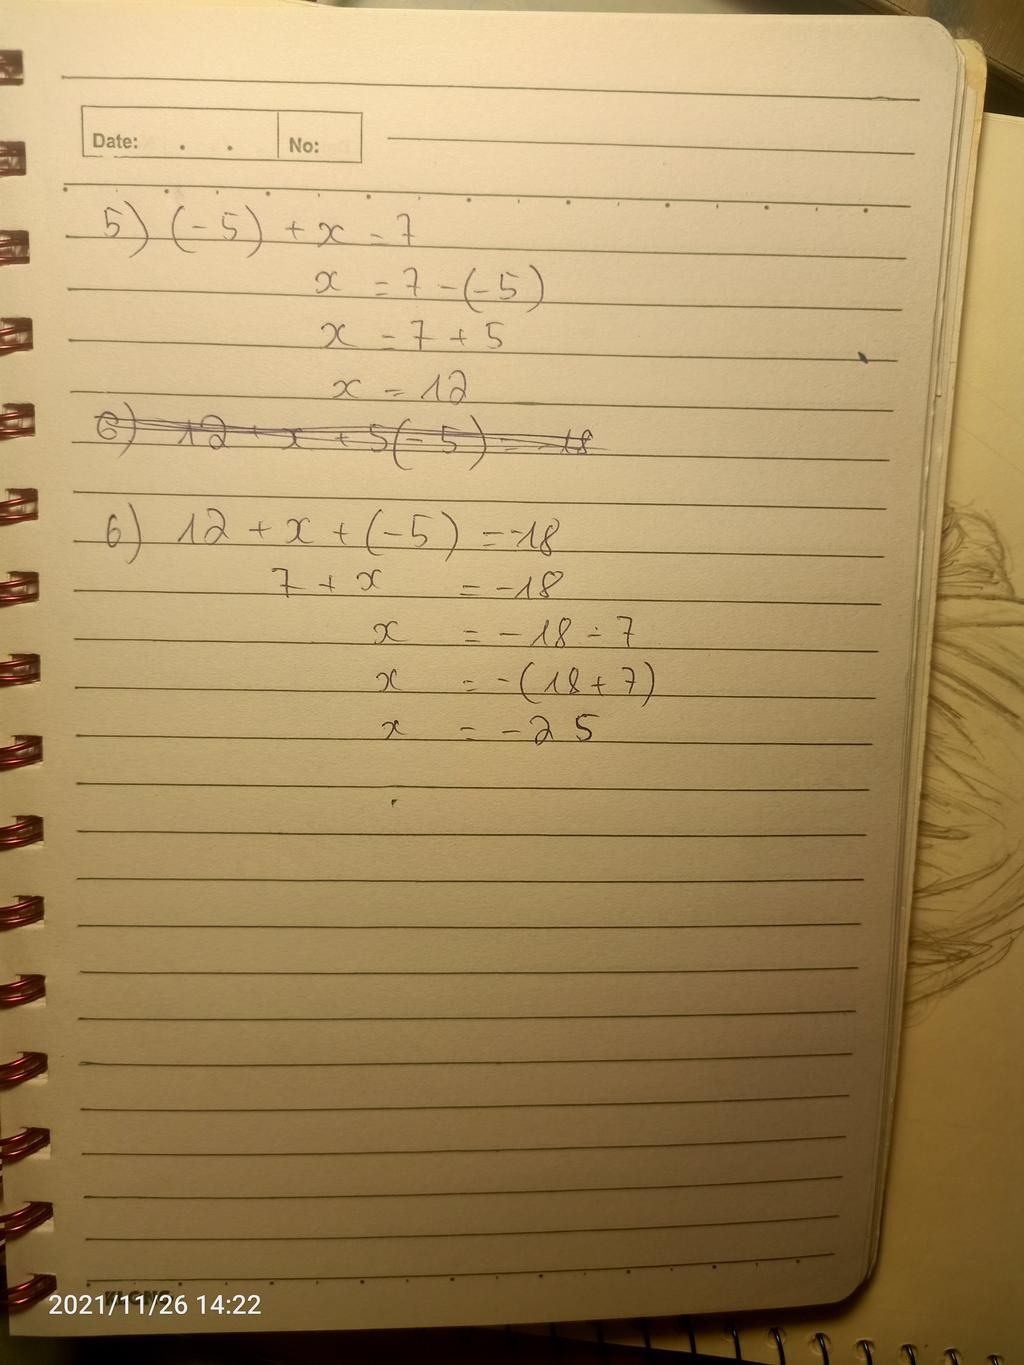 Date: . . No:
5) (-5) + x = 7
x = 7 - (-5)
x = 7 + 5
x = 12
6) 12 + x + 5(-5) = -18
6) 12 + x + (-5) = -18
7 + x = -18
x = -18 - 7
x = -(18 + 7)
x = -25
2021/11/26 14:22